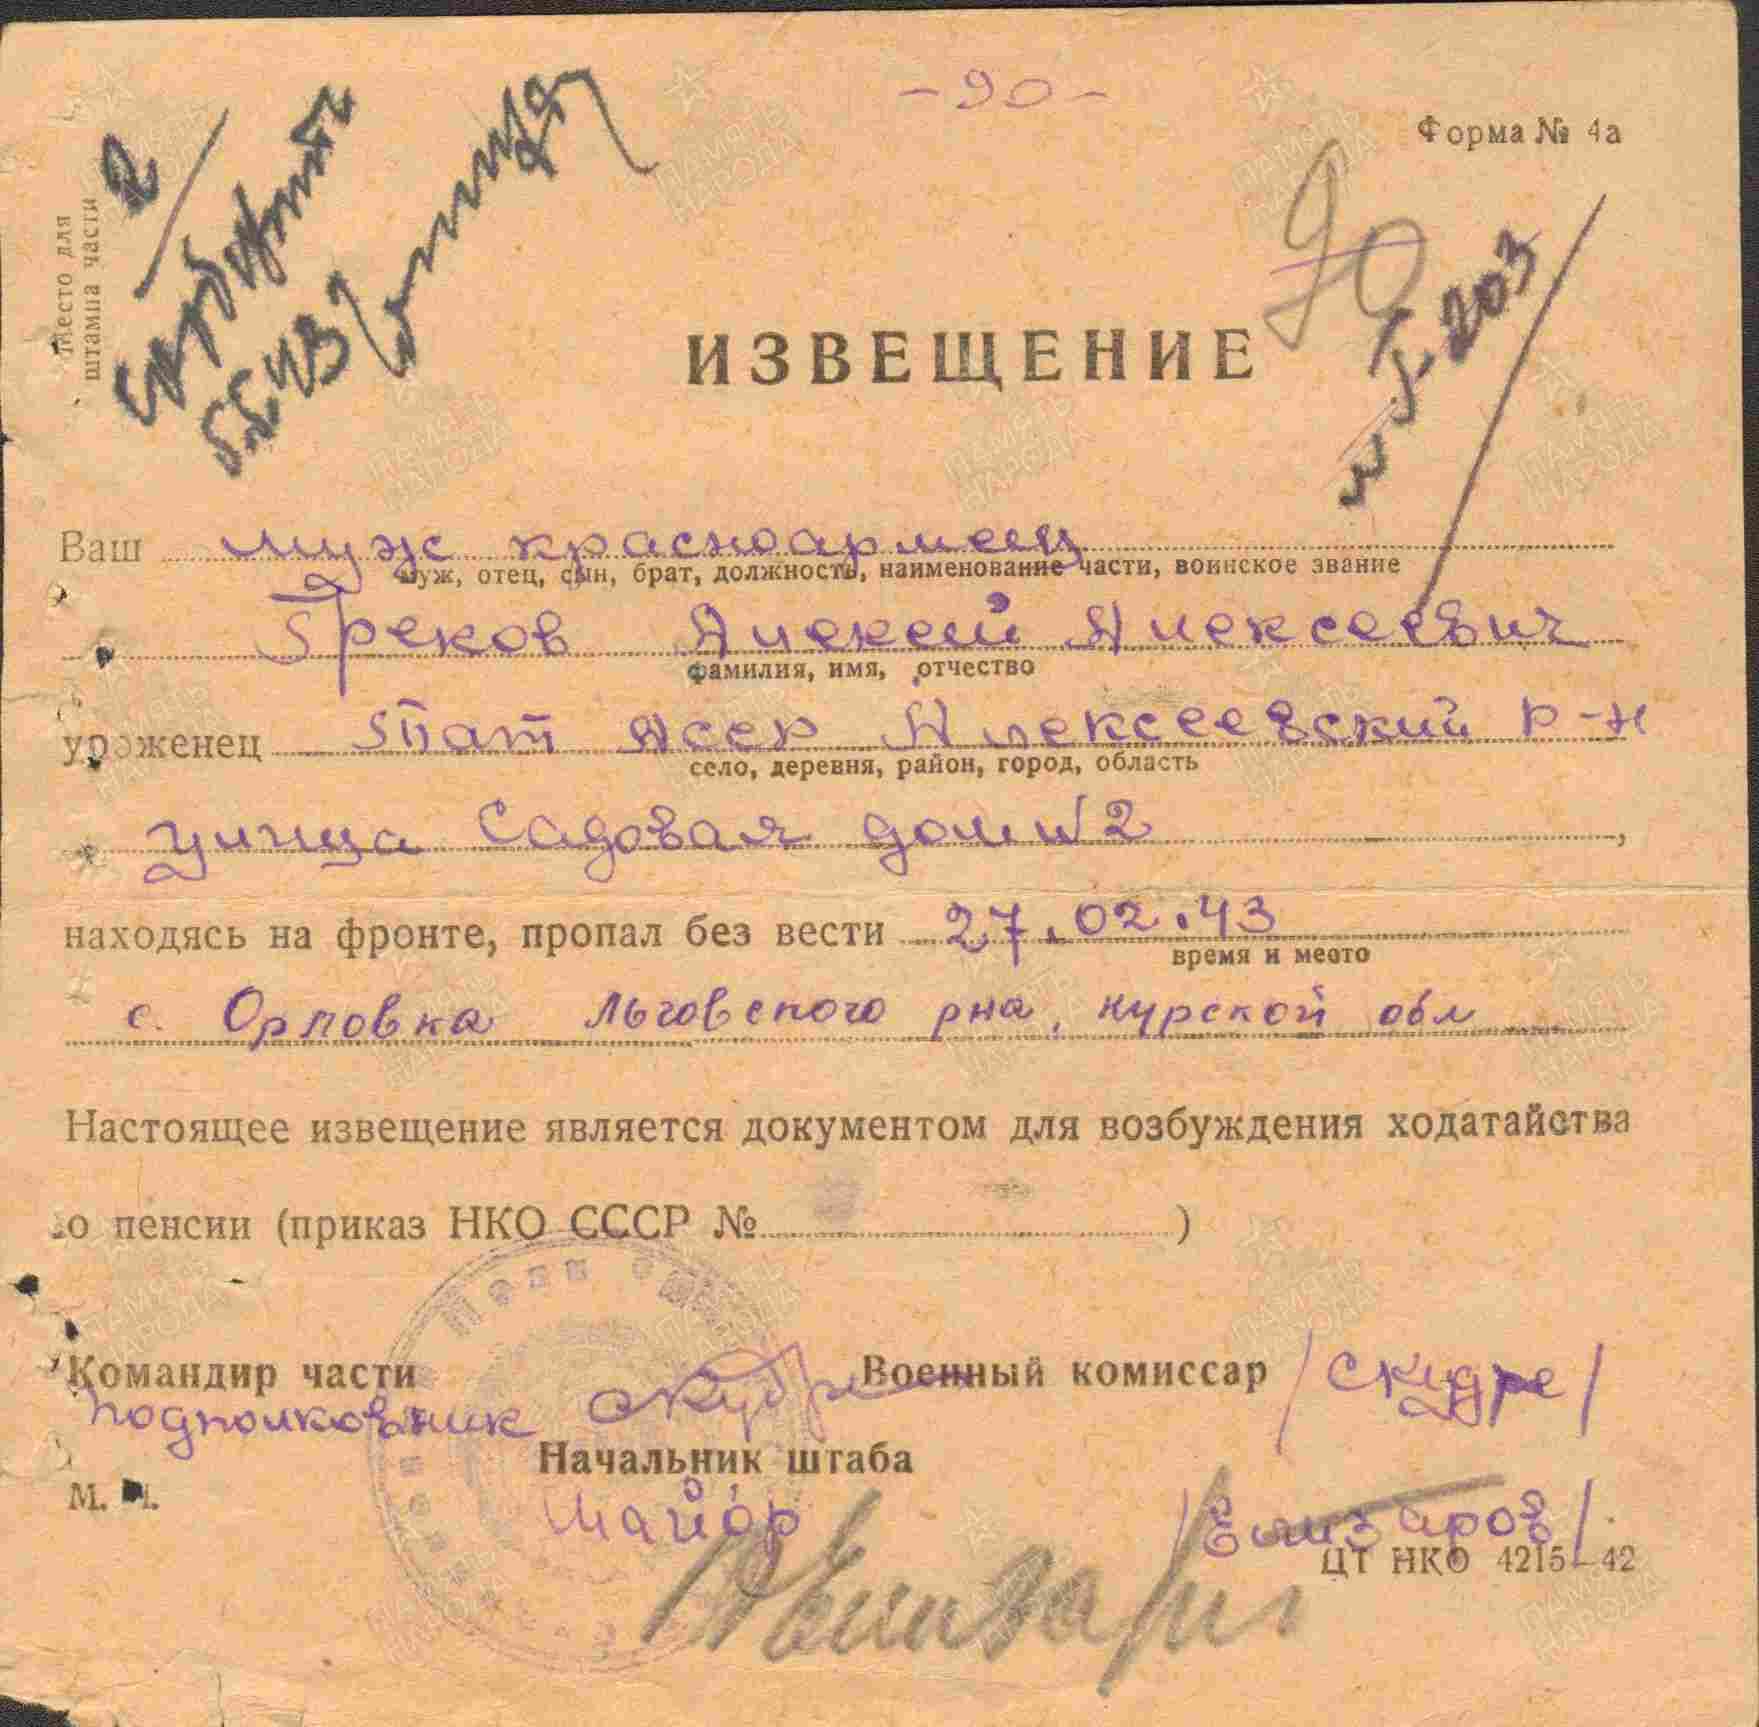 - 90 -
Форма № 4а
Место для
штампа части
2/
5.5.43
90
И З В Е Щ Е Н И Е
Ваш муж красноармеец
муж, отец, сын, брат, должность, наименование части, воинское звание
Греков Алексей Алексеевич
фамилия, имя, отчество
уроженец Тат Асср Алексеевский р-н
село, деревня, район, город, область
улица Садовая дом №2,
находясь на фронте, пропал без вести 27.02.43
время и место
с. Орловка Льговского рна, Курской обл
Настоящее извещение является документом для возбуждения ходатайства
о пенсии (приказ НКО СССР № )
Командир части Военный комиссар /Скудре/
подполковник
Начальник штаба
М. П.
майор /Елизаров/
ЦТ НКО 4215—42